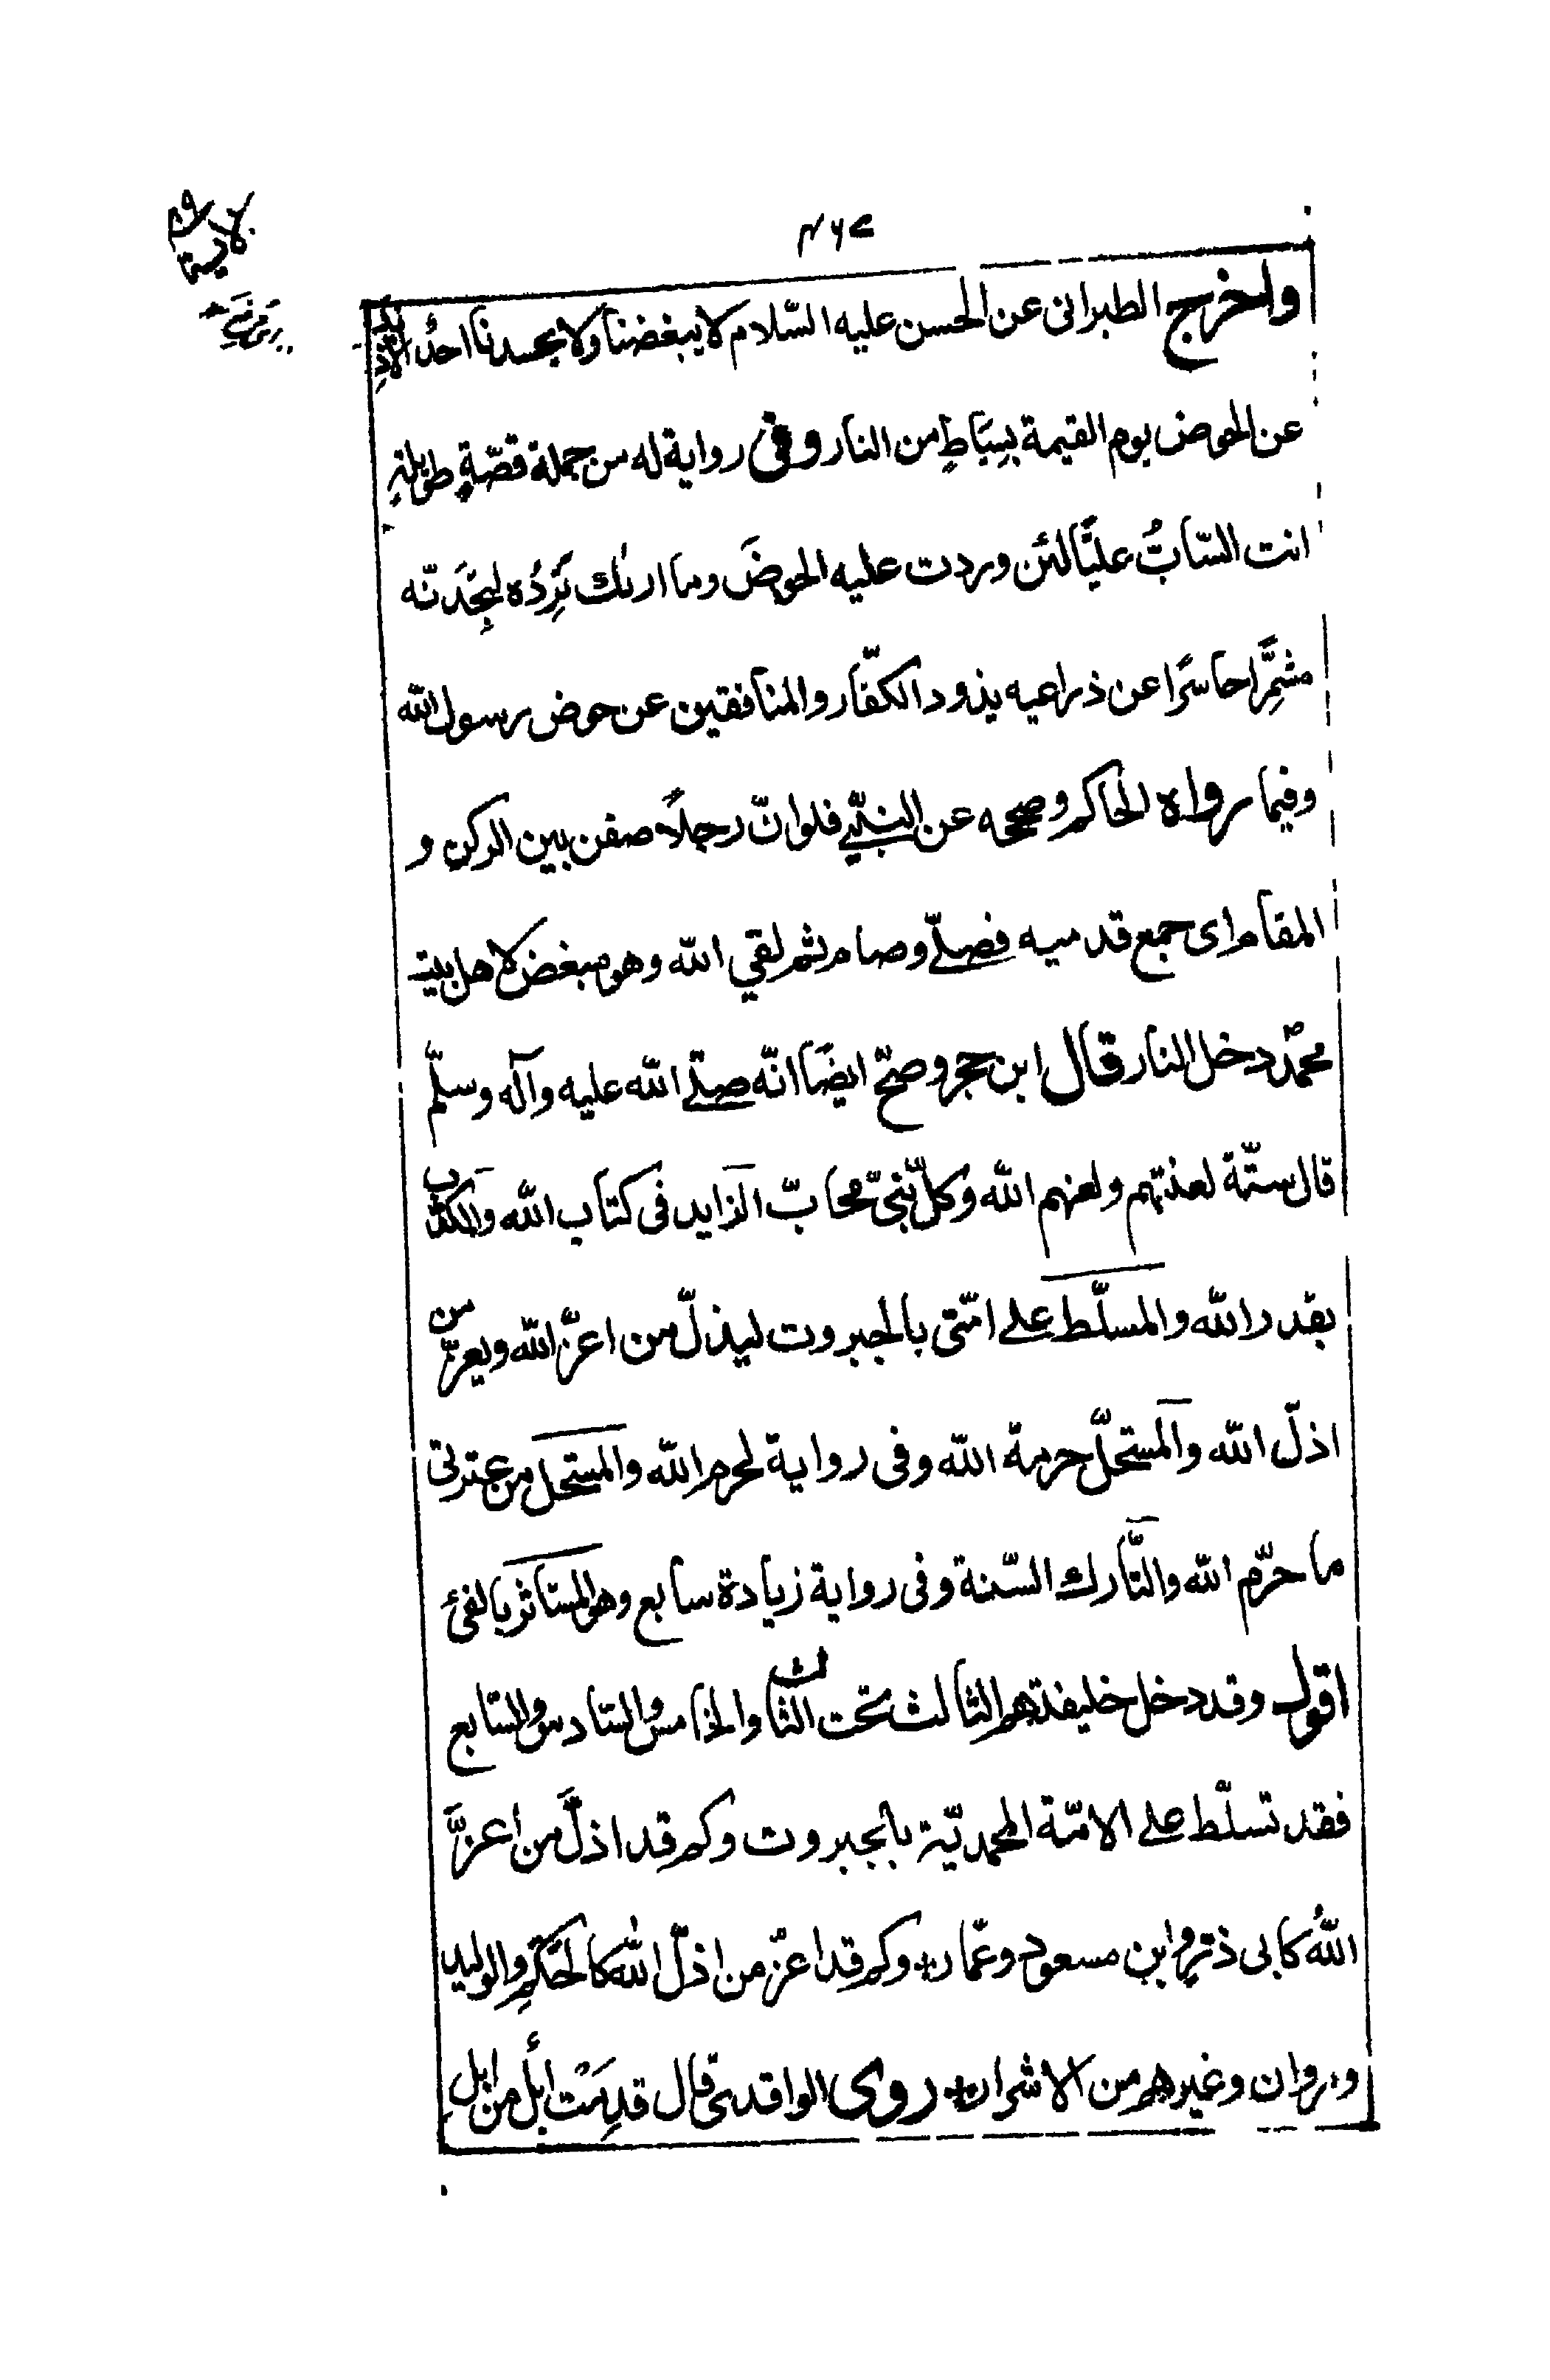 ۴۶۷
واخرج الطبرانى عن الحسن عليه السّلام لا يبغضنا ولا يحسدنا احدٌ الا ذيد
عن الحوض يوم القيمة بسِيَاطٍ من النار وفى رواية له من جملة قصّةٍ طويلةٍ
انت السّابُّ عليًّا لئن وردت عليه الحوضَ وما اراك تَرِدُه لَتِجَدَنّه
مشمِّرًا حاسرًا عن ذراعيه يذود الكفّار والمنافقين عن حوض رسول الله
وفيما رواه الحاكم وصححه عن النبيّ فلو انّ رجلًا صفن بين الركن و
المقام اى جمع قدميه فصلّے وصام ثم لقي الله وهو مبغض لاهل بيت
محمّدٍ دخل النار قال ابن حجر وصحّ ايضًا انّه صلّے الله عليه وآله وسلّم
قال ستّة لعنتهم ولعنهم الله وكلّ نبىّ مجابّ الزايد فى كتاب الله والمكذب
بقدر الله والمسلّط علے امّتى بالجبروت ليذلّ من اعزّ الله ويعزّ من
اذلّ الله والمستحلّ حرمة الله وفى رواية لحرم الله والمستحل من عترتى
ما حرّم الله والتّارك السّنة وفى رواية زيادة سابع وهو المستاثر بالفئ
اقول وقد دخل خليفتهم الثالث تحت الثالث والخامس والسّادس والسّابع
فقد تسلّط علے الامّة المحمديّة بالجبروت وكم قد اذلَّ من أعزَّ
اللهُ كابى ذرٍّ وابن مسعود وعمّار وكم قد اعزّ من اذلّ الله كالحَكَم والوليد
ومروان وغيرهم من الاشرار روى الواقدىّ قال قدِمَتْ ابلٌ من ابل